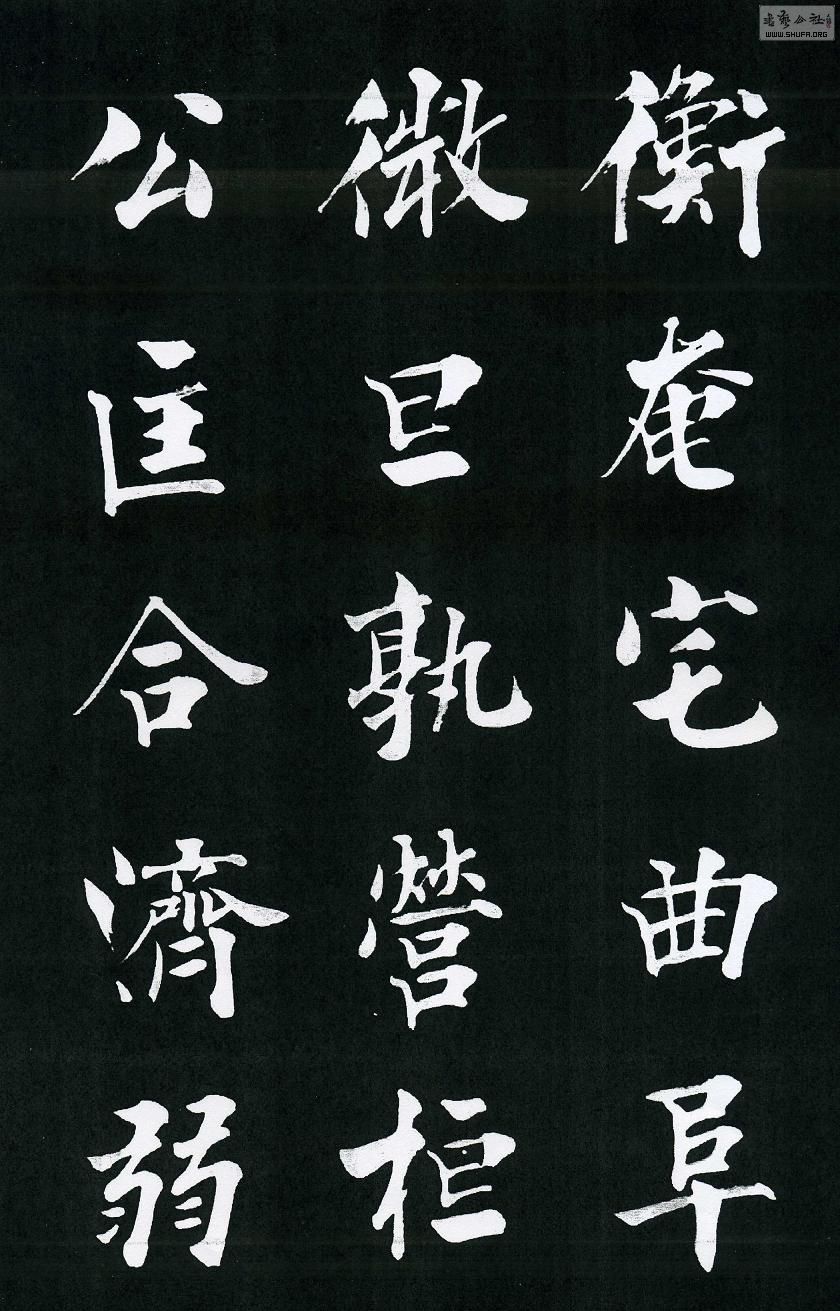 衡奄宅曲阜
微旦孰營桓
公匡合濟弱
書藝公社
WWW.SHUFA.ORG